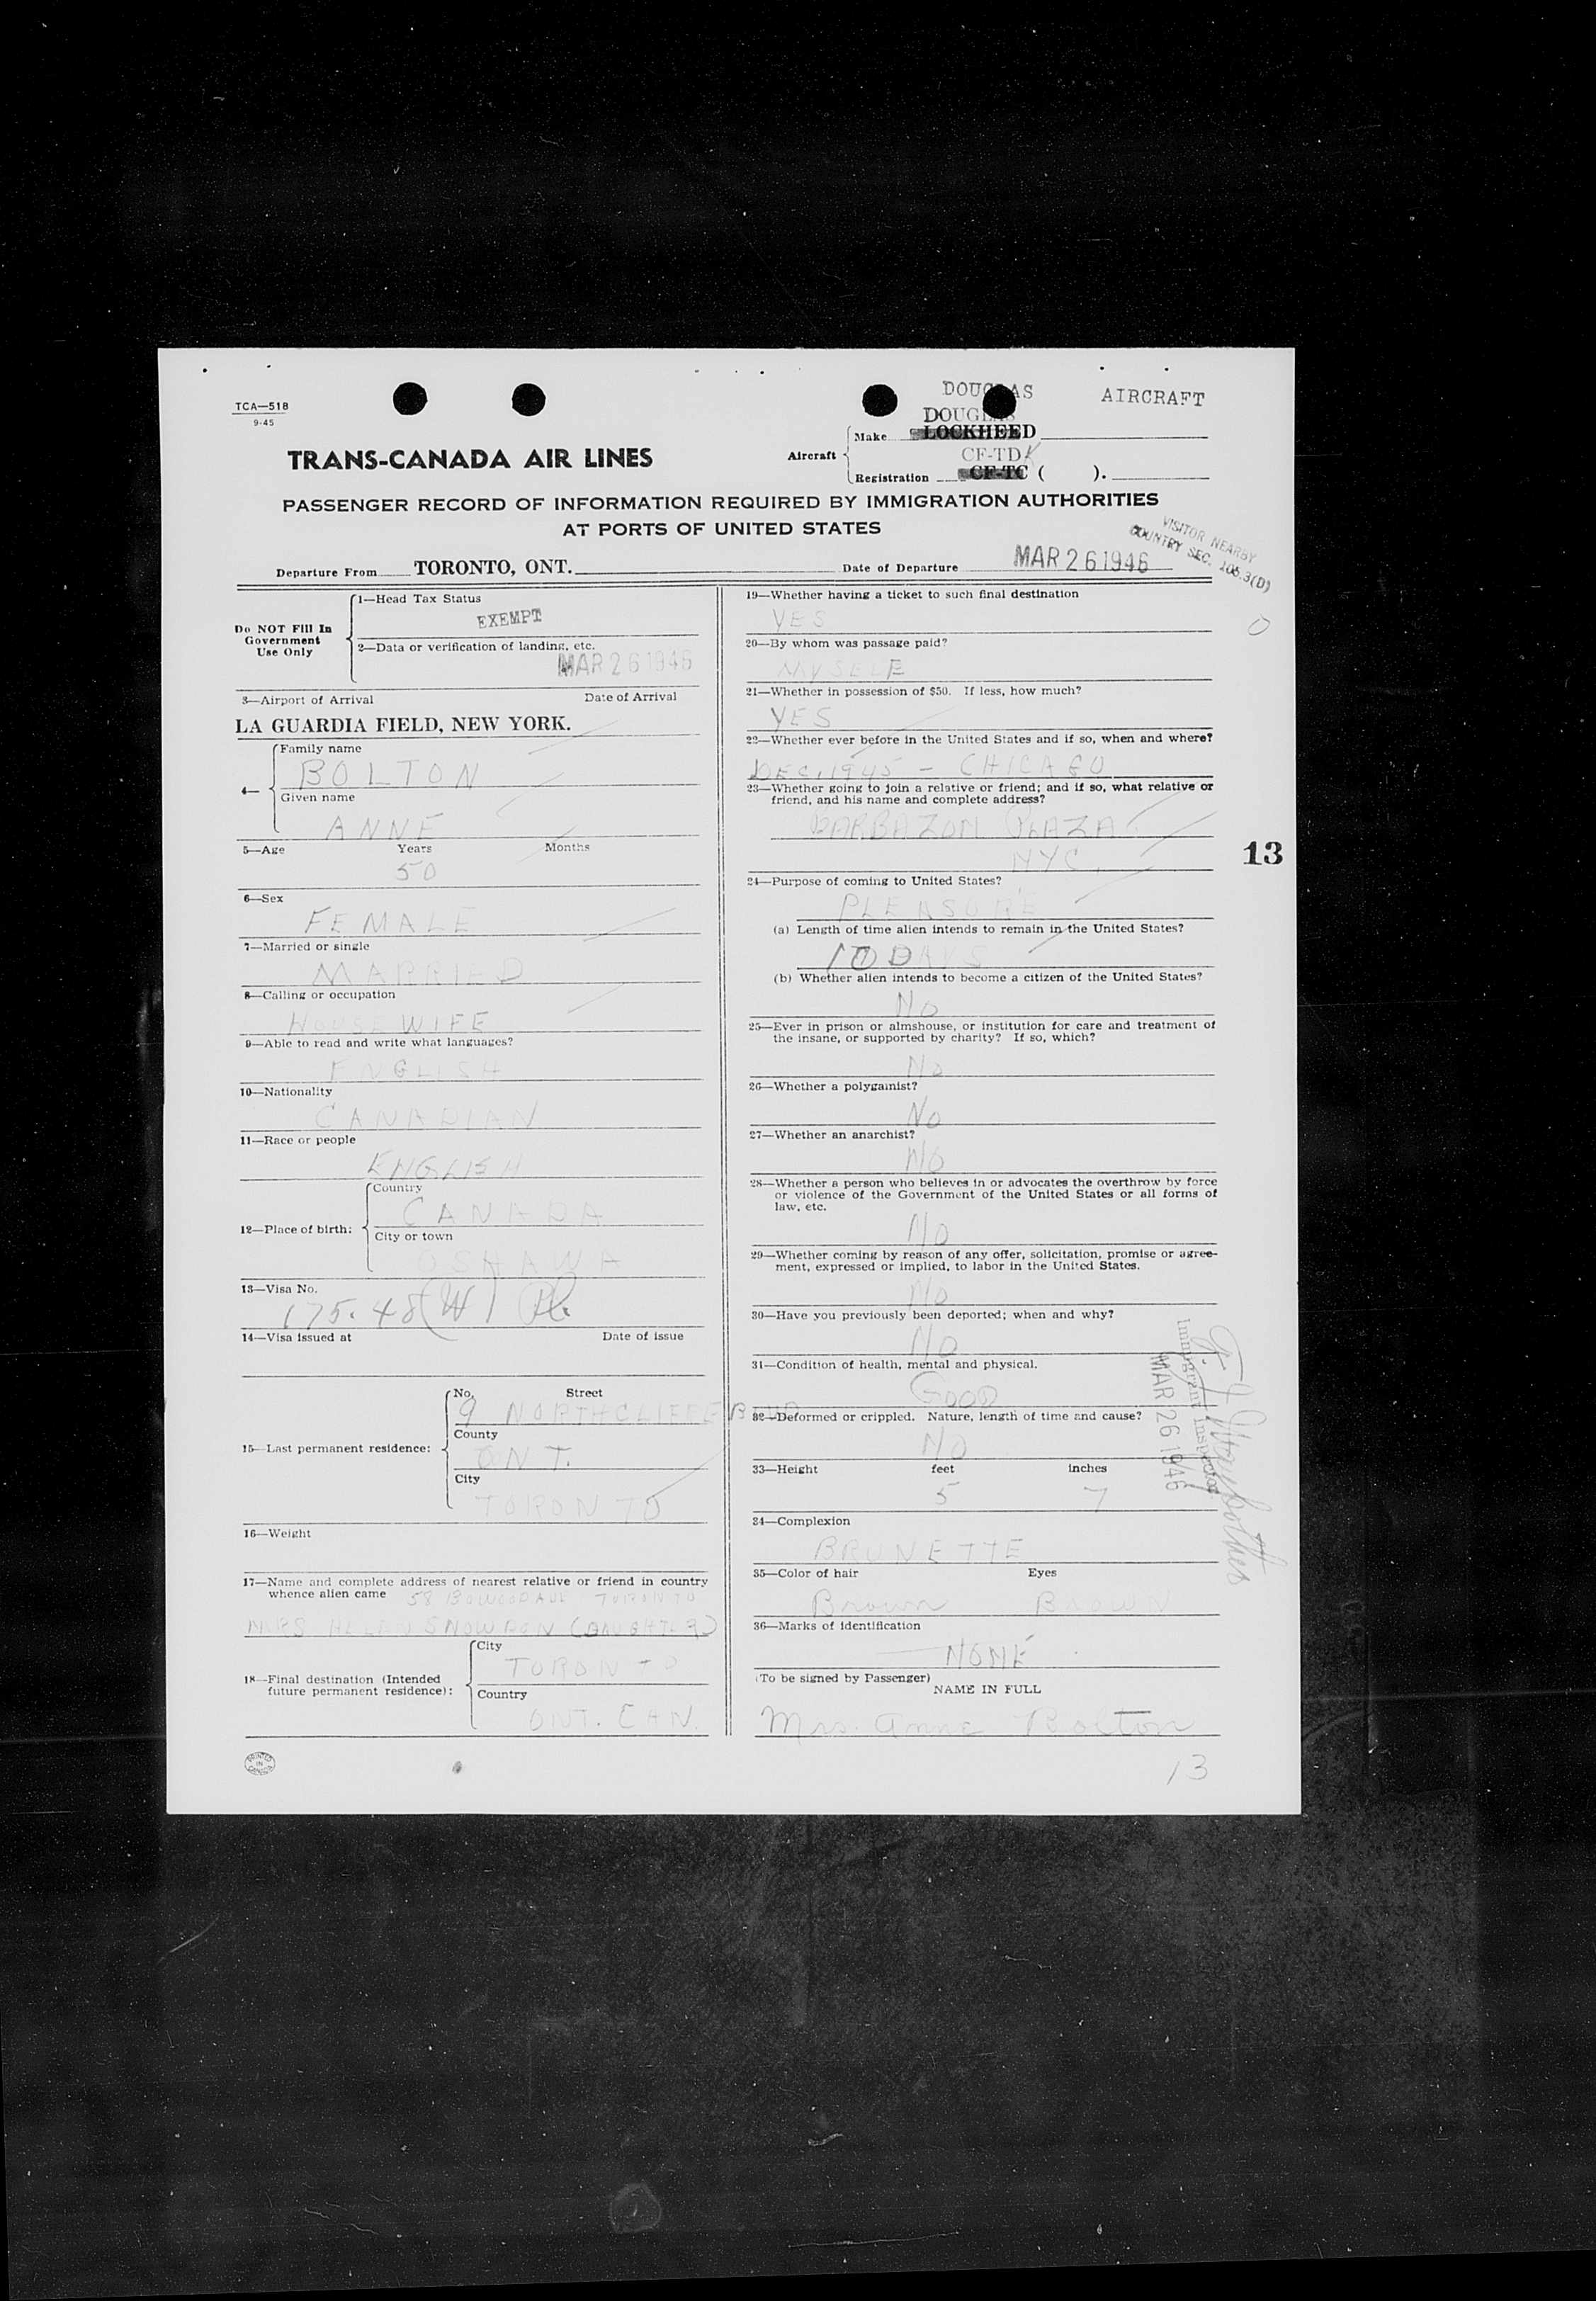 TCA—518
9-45
DOUGLAS AIRCRAFT
DOUGLAS
Make LOCKHEED
TRANS-CANADA AIR LINES
Aircraft
CF-TDK
Registration CF-TC ( ).
PASSENGER RECORD OF INFORMATION REQUIRED BY IMMIGRATION AUTHORITIES
AT PORTS OF UNITED STATES
VISITOR NEARBY
COUNTRY SEC. 106.3(D)
Departure From TORONTO, ONT. Date of Departure MAR 26 1946
Do NOT Fill In
Government
Use Only
1—Head Tax Status
EXEMPT
2—Data or verification of landing, etc.
MAR 26 1946
3—Airport of Arrival Date of Arrival
LA GUARDIA FIELD, NEW YORK.
4—
Family name
BOLTON
Given name
ANNE
5—Age Years Months
50
6—Sex
FEMALE
7—Married or single
MARRIED
8—Calling or occupation
HOUSEWIFE
9—Able to read and write what languages?
ENGLISH
10—Nationality
CANADIAN
11—Race or people
ENGLISH
12—Place of birth:
Country
CANADA
City or town
OSHAWA
13—Visa No.
175.48(W)
14—Visa issued at Date of issue
15—Last permanent residence:
No. Street
9 NORTHCLIFFE BLVD
County
ONT.
City
TORONTO
16—Weight
17—Name and complete address of nearest relative or friend in country
whence alien came 58 BOWOOD AVE TORONTO
MRS HELEN SNOWDON (DAUGHTER)
18—Final destination (Intended
future permanent residence):
City
TORONTO
Country
ONT. CAN.
PRINTED
IN
CANADA
19—Whether having a ticket to such final destination
YES
0
20—By whom was passage paid?
MYSELF
21—Whether in possession of $50. If less, how much?
YES
22—Whether ever before in the United States and if so, when and where?
DEC. 1945 - CHICAGO
23—Whether going to join a relative or friend; and if so, what relative or
friend, and his name and complete address?
BARBAZON PLAZA
NYC.
13
24—Purpose of coming to United States?
PLEASURE
(a) Length of time alien intends to remain in the United States?
10 DAYS
(b) Whether alien intends to become a citizen of the United States?
No
25—Ever in prison or almshouse, or institution for care and treatment of
the insane, or supported by charity? If so, which?
No
26—Whether a polygamist?
No
27—Whether an anarchist?
No
28—Whether a person who believes in or advocates the overthrow by force
or violence of the Government of the United States or all forms of
law, etc.
No
29—Whether coming by reason of any offer, solicitation, promise or agree-
ment, expressed or implied, to labor in the United States.
No
30—Have you previously been deported; when and why?
No
31—Condition of health, mental and physical.
GOOD
32—Deformed or crippled. Nature, length of time and cause?
NO
33—Height feet inches
5 7
34—Complexion
BRUNETTE
35—Color of hair Eyes
Brown BROWN
36—Marks of identification
NONE
(To be signed by Passenger)
NAME IN FULL
Mrs. Anne Bolton
Immigrant Inspector
MAR 26 1946
13